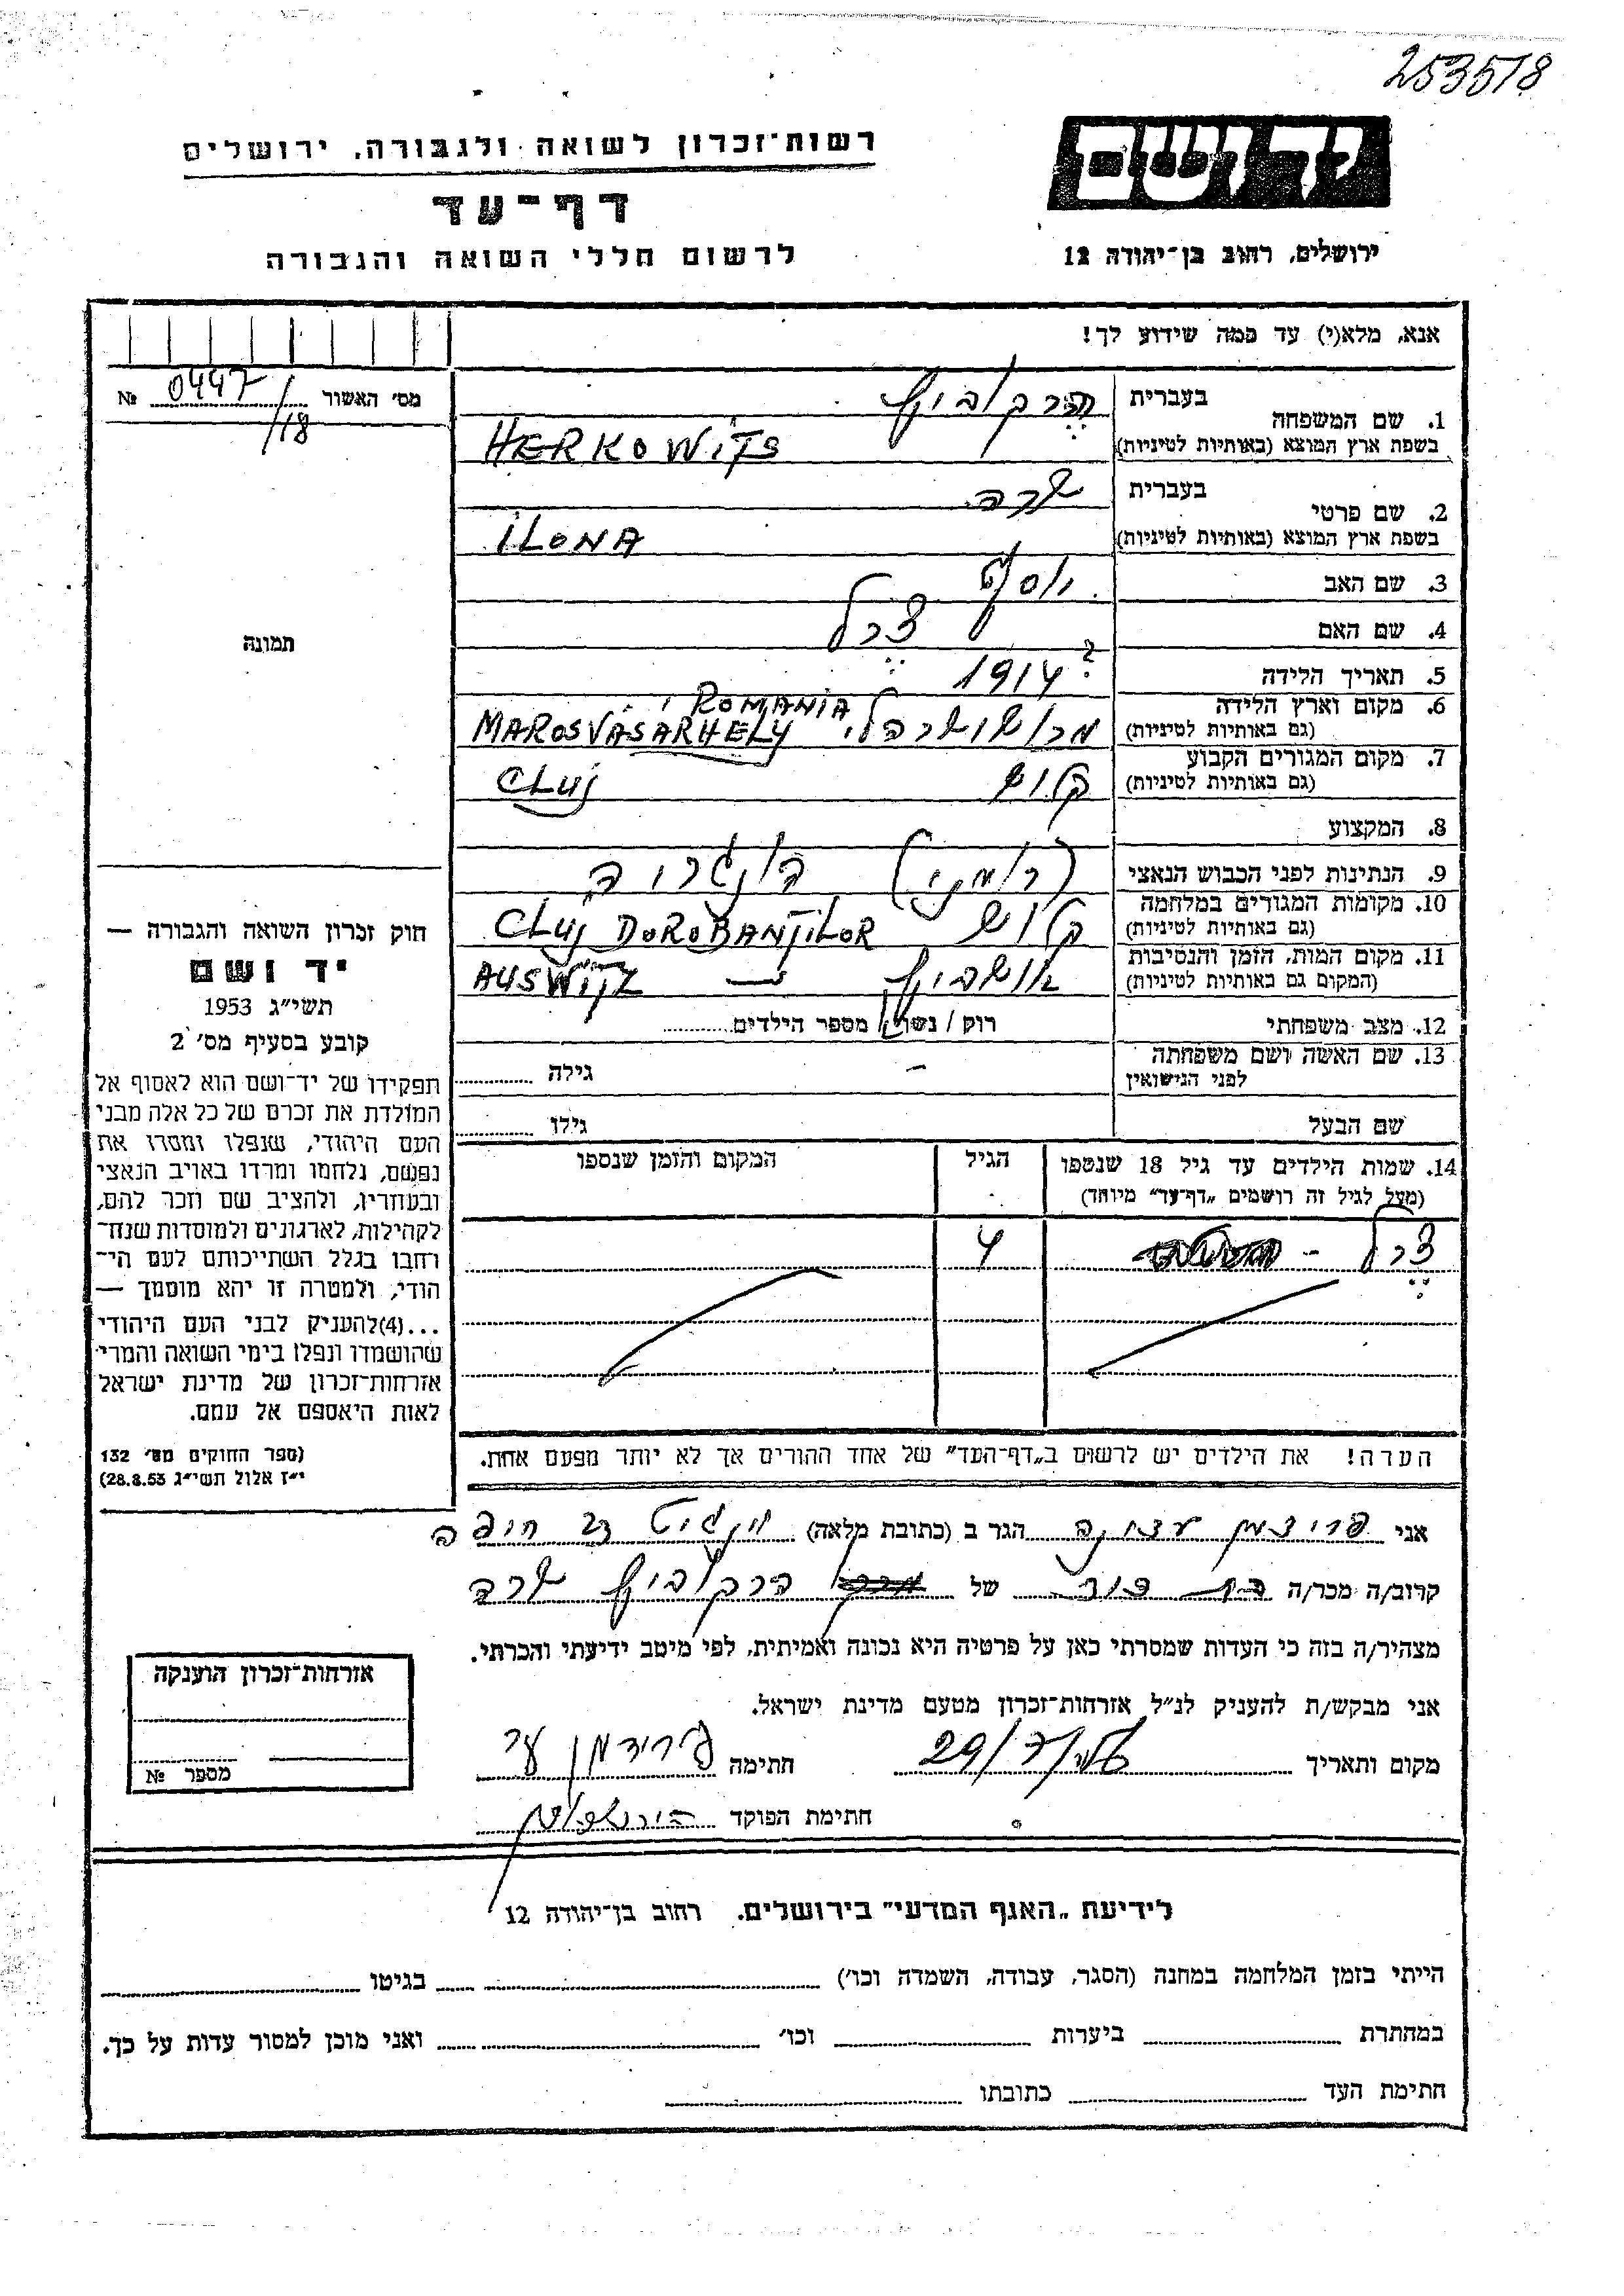 253518
רשות־זכרון לשואה ולגבורה, ירושלים
יד ושם
דף־עד
לרשום חללי השואה והגבורה
ירושלים, רחוב בן־יהודה 12
אנא, מלא(י) עד כמה שידוע לך!
מס׳ האשור 0447/118 №
1. שם המשפחה
בעברית הרקוביץ
בשפת ארץ המוצא (באותיות לטיניות) HERKOWITS
2. שם פרטי
בעברית שרה
בשפת ארץ המוצא (באותיות לטיניות) ILONA
3. שם האב יוסף
4. שם האם פרל
5. תאריך הלידה 1914 ?
6. מקום וארץ הלידה ROMANIA
(גם באותיות לטיניות) MAROSVÁSARHELY
7. מקום המגורים הקבוע
(גם באותיות לטיניות) קלוש CLUJ
8. המקצוע
9. הנתינות לפני הכבוש הנאצי (רומני) הונגריה
10. מקומות המגורים במלחמה
(גם באותיות לטיניות) קלוש CLUJ DOROBANȚILOR
11. מקום המות, הזמן והנסיבות
(המקום גם באותיות לטיניות) אושביץ — AUSWITZ
12. מצב משפחתי רוק / נשוי / מספר הילדים
13. שם האשה ושם משפחתה
לפני הנישואין — גילה
שם הבעל גילו
14. שמות הילדים עד גיל 18 שנספו הגיל המקום והזמן שנספו
(מעל לגיל זה רושמים „דף־עד״ מיוחד)
פרל - 4
הערה! את הילדים יש לרשום ב„דף־העד״ של אחד ההורים אך לא יותר מפעם אחת.
תמונה
חוק זכרון השואה והגבורה —
יד ושם
תשי״ג 1953
קובע בסעיף מס׳ 2
תפקידו של יד־ושם הוא לאסוף אל
המולדת את זכרם של כל אלה מבני
העם היהודי, שנפלו ומסרו את
נפשם, נלחמו ומרדו באויב הנאצי
ובעוזריו, ולהציב שם וזכר להם,
לקהילות, לארגונים ולמוסדות שנח־
רבו בגלל השתייכותם לעם הי־
הודי, ולמטרה זו יהא מוסמך —
...(4)להעניק לבני העם היהודי
שהושמדו ונפלו בימי השואה והמרי
אזרחות־זכרון של מדינת ישראל
לאות היאספם אל עמם.
(ספר החוקים מס׳ 132
י״ז אלול תשי״ג 28.8.53)
אני פרידמן הגר ב (כתובת מלאה) וינגיט חיפה
קרוב/ה מכר/ה של הרקוביץ שרה
מצהיר/ה בזה כי העדות שמסרתי כאן על פרטיה היא נכונה ואמיתית, לפי מיטב ידיעתי והכרתי.
אני מבקש/ת להעניק לנ״ל אזרחות־זכרון מטעם מדינת ישראל.
מקום ותאריך 29/ חתימה פרידמן
חתימת הפוקד
אזרחות־זכרון הוענקה
מספר №
לידיעת „האגף המדעי״ בירושלים. רחוב בן־יהודה 12
הייתי בזמן המלחמה במחנה (הסגר, עבודה, השמדה וכו׳) בגיטו
במחתרת ביערות וכו׳ ואני מוכן למסור עדות על כך.
חתימת העד כתובתו